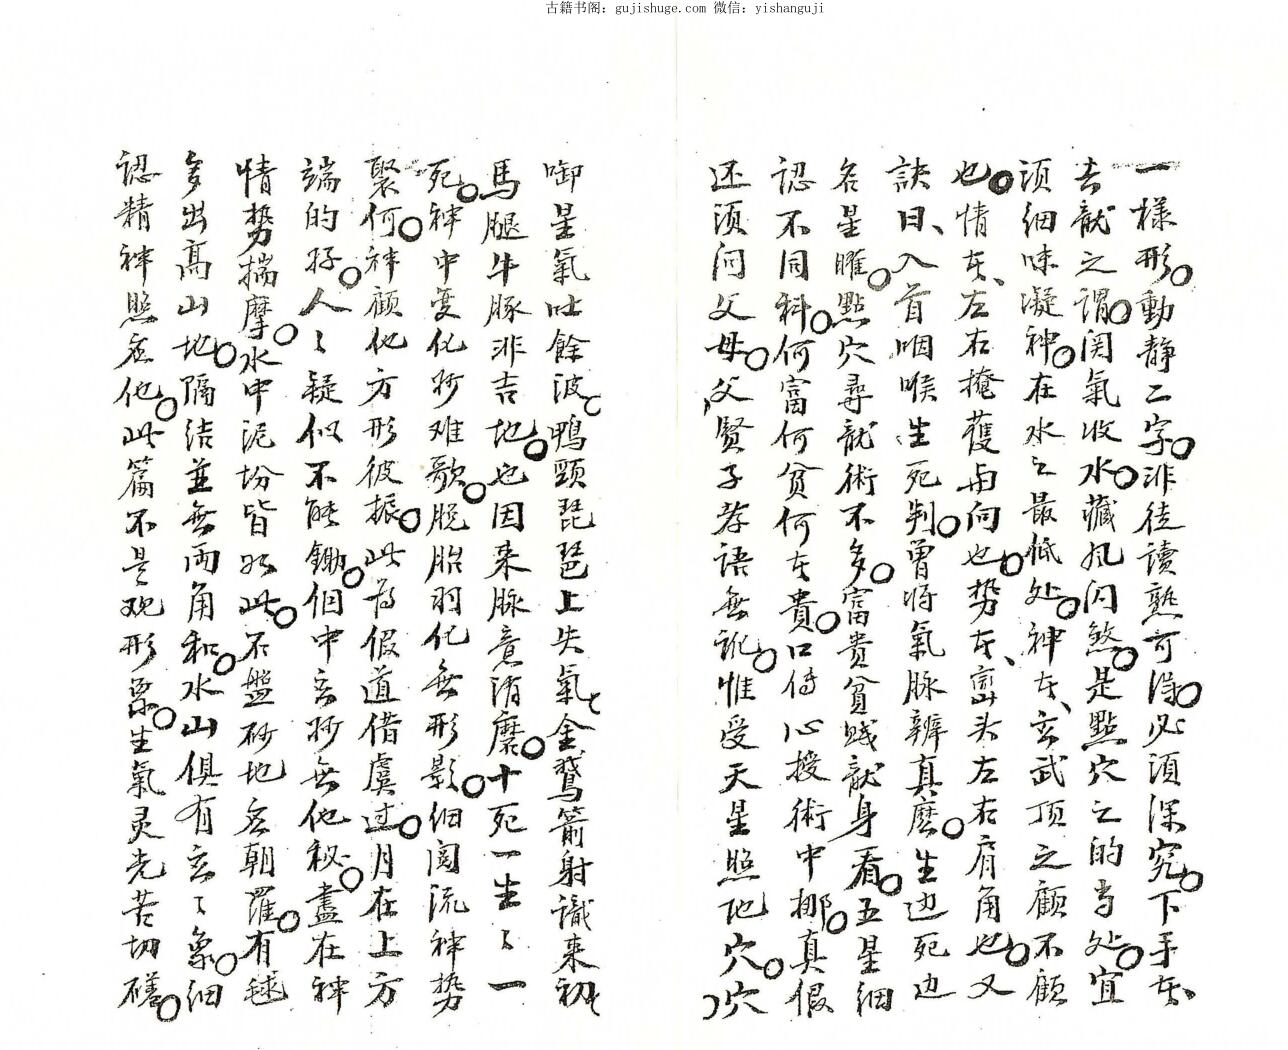 古籍书阁：gujishuge.com 微信：yishanguji
一樣形。動静二字。非徒讀熟可得。必須深究。下手在、
去龍之謂。関氣收水。藏风闪煞。是點穴之的当处。宜
须细味凝神。在水之最低处。神在、玄武顶之顧不顧
也。情在、左右掩護与向也。势在、峦头左右肩角也。又
訣曰、入首咽喉生死判。曾将氣脉辨真麽。生边死边
名星睢。點穴尋龍術不多。富贵貧贱龍身看。五星细
認不同科。何富何贫何在貴。口傳心授術中挪。真假
还须问父母。父贤子孝语無訛。惟受天星照地穴。穴
啣星氣吐餘波。鴨頸琵琶上失氣。金鵞箭射識来初。
馬腿牛豚非吉地。也因来脉意消磨。十死一生々一
死。神中变化妙难歌。脱胎羽化無形影。细閲流神势
聚何。神顧他方形彼振。此為假道借虞过。月在上方
端的好。人々疑似不能鋤。個中玄妙無他秘。盡在神
情势揣摩。水中泥坋皆如此。石盤砂地名朝羅。有毬
多出高山地。隔结並無両角和。水山俱有玄々象。细
認精神照在他。此篇不是观形象。生氣灵光苦切磋。